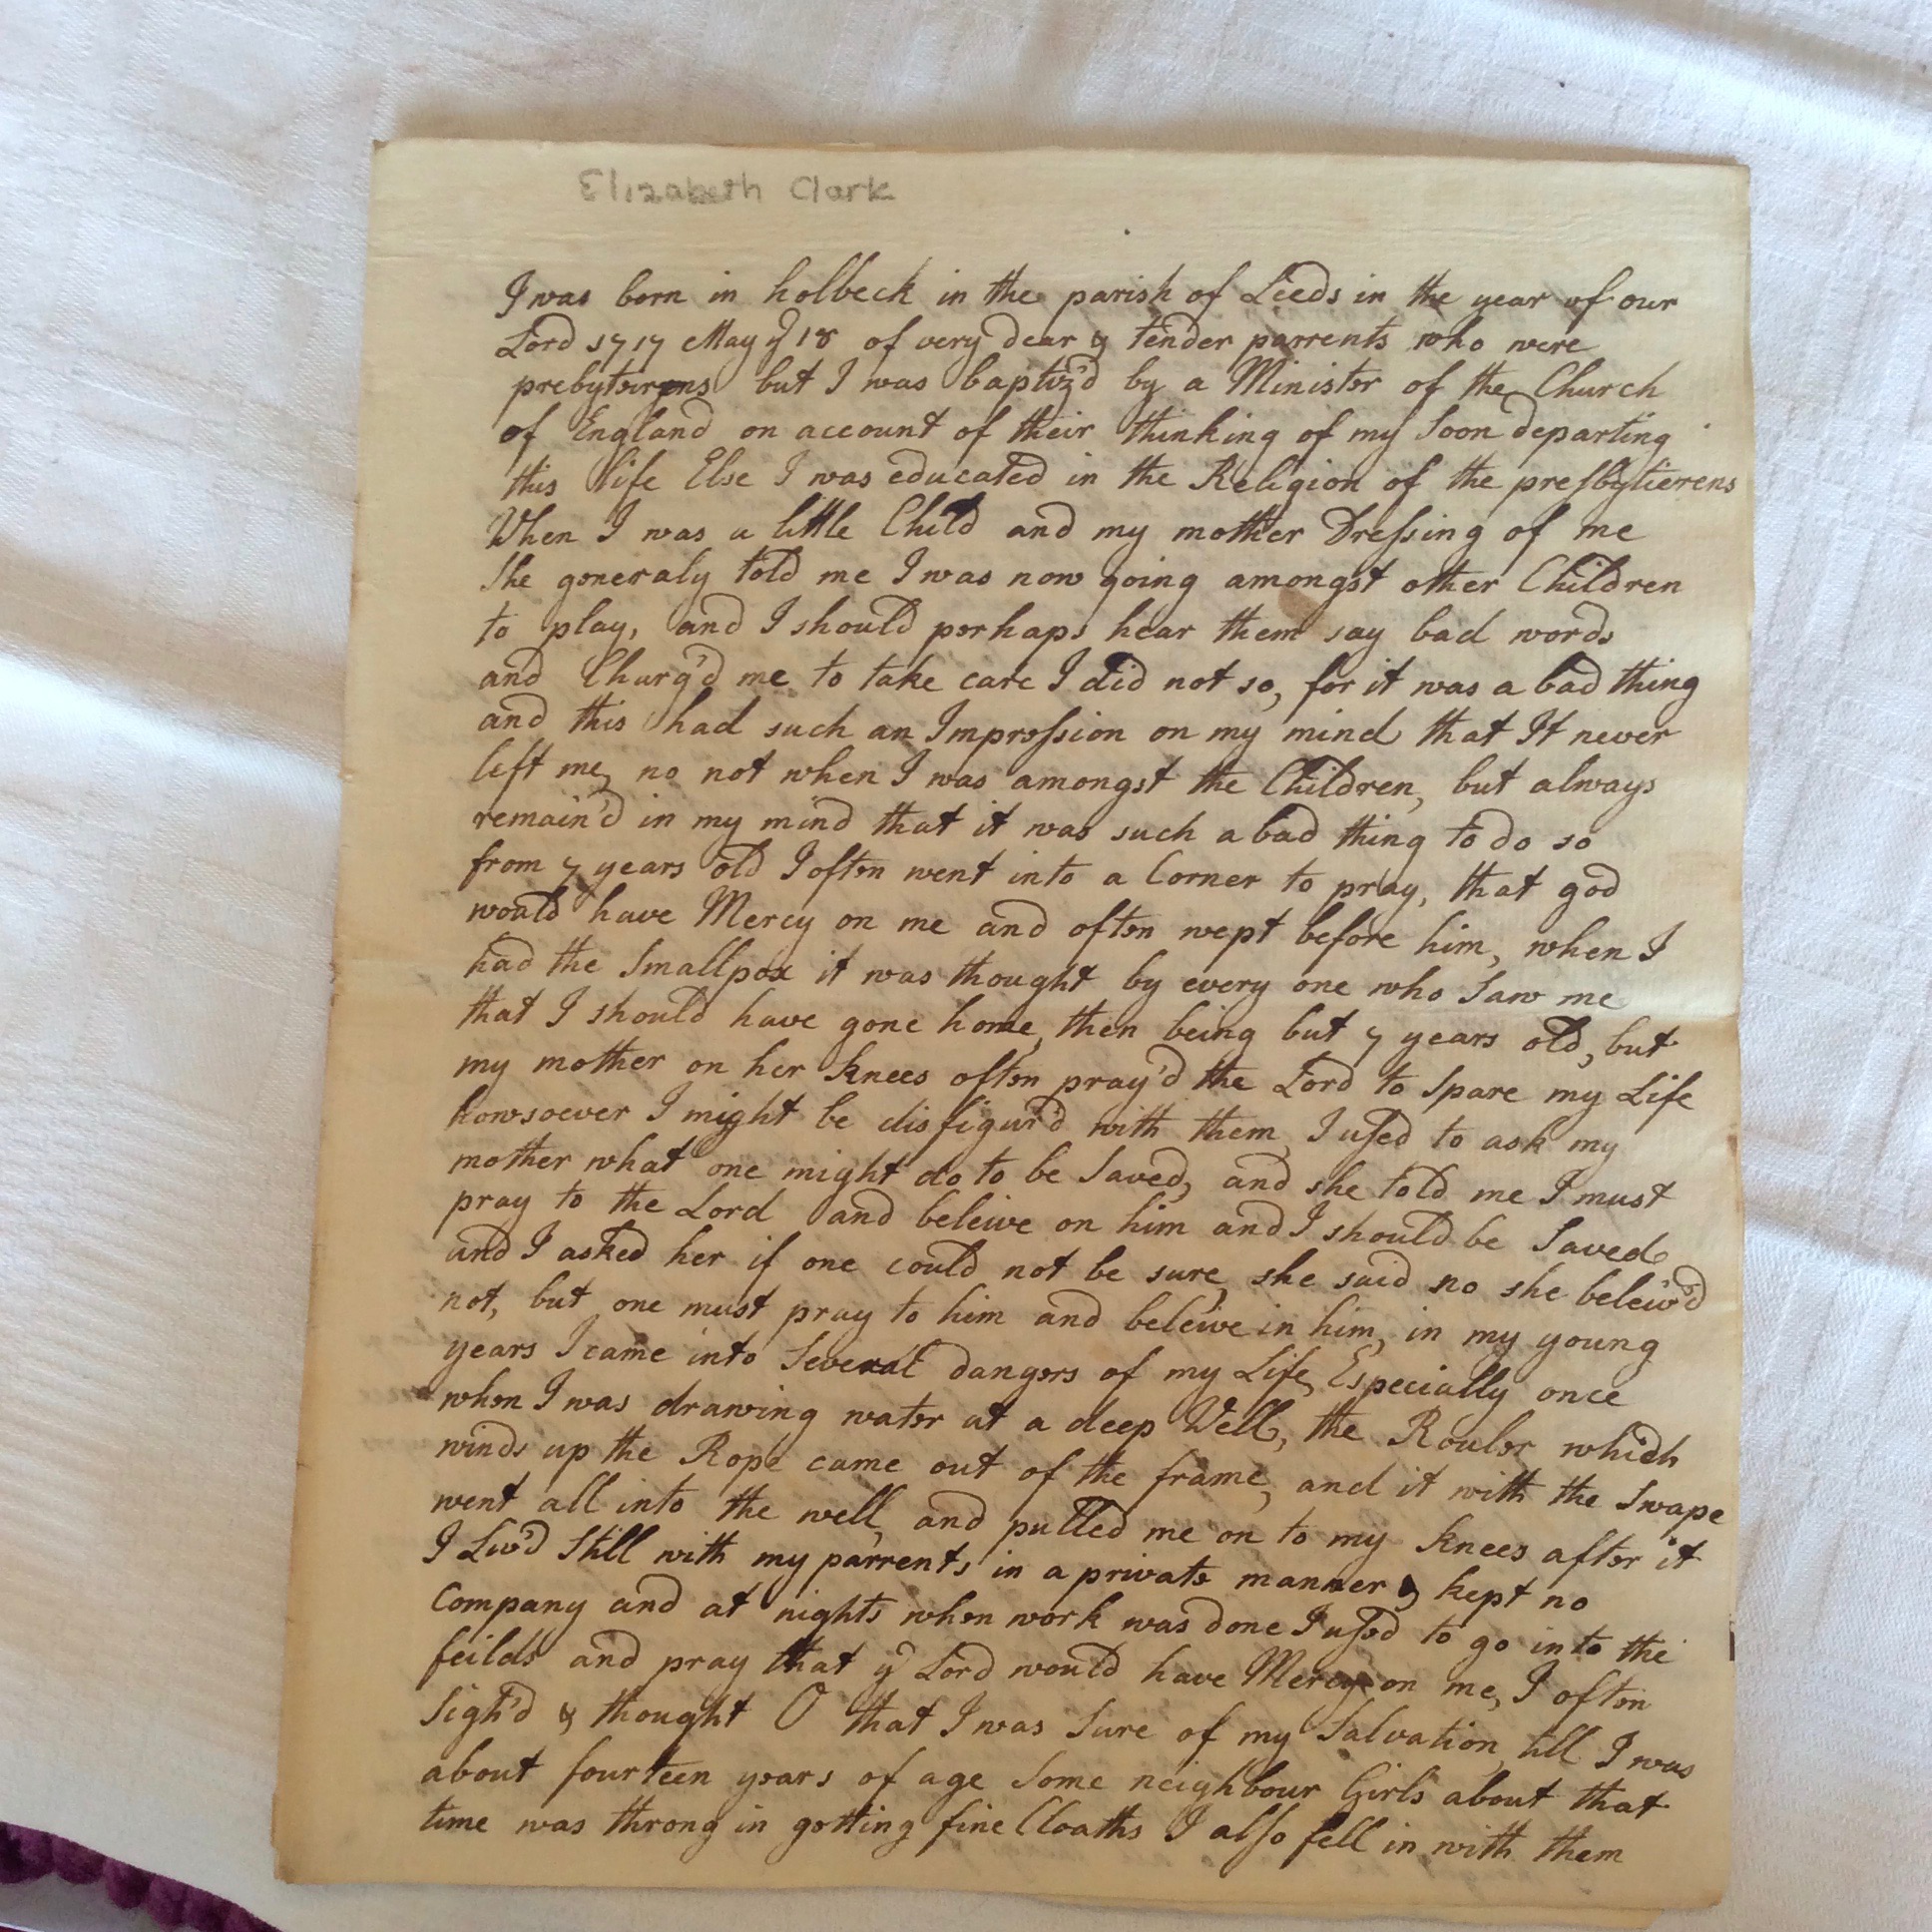 Elizabeth Clark
I was born in holbeck in the parish of Leeds in the year of our
Lord 1717 May ye 18 of very dear & tender parrents who were
prebyteirens but I was baptiz'd by a Minister of the Church
of England on account of their thinking of my Soon departing
this life Else I was educated in the Religion of the presbytierens
When I was a little Child and my mother Dressing of me
She generaly told me I was now going amongst other Children
to play, and I should perhaps hear them say bad words
and Charg'd me to take care I did not so, for it was a bad thing
and this had such an Impression on my mind that It never
left me, no not when I was amongst the Children, but always
remain'd in my mind that it was such a bad thing to do so
from 7 years old I often went into a Corner to pray, that god
would have Mercy on me and often wept before him, when I
had the Smallpox it was thought by every one who Saw me
that I should have gone home, then being but 7 years old, but
my mother on her knees often pray'd the Lord to Spare my Life
howsoever I might be disfigur'd with them, I used to ask my
mother what one might do to be Saved, and she told me I must
pray to the Lord and beleive on him and I should be Saved
and I asked her if one could not be sure, she said no she beleiv'd
not, but one must pray to him and beleive in him, in my young
years I came into Several dangers of my Life, Especially once
when I was drawing water at a deep Well, the Rouler which
winds up the Rope came out of the frame, and it with the Swape
went all into the well, and pulled me on to my knees after it
I Liv'd Still with my parrents in a private manner & kept no
Company and at nights when work was done I used to go into the
feilds and pray that ye Lord would have Mercy on me, I often
Sigh'd & thought O that I was Sure of my Salvation, till I was
about fourteen years of age Some neighbour Girls about that
time was throng in getting fine Cloaths I also fell in with them